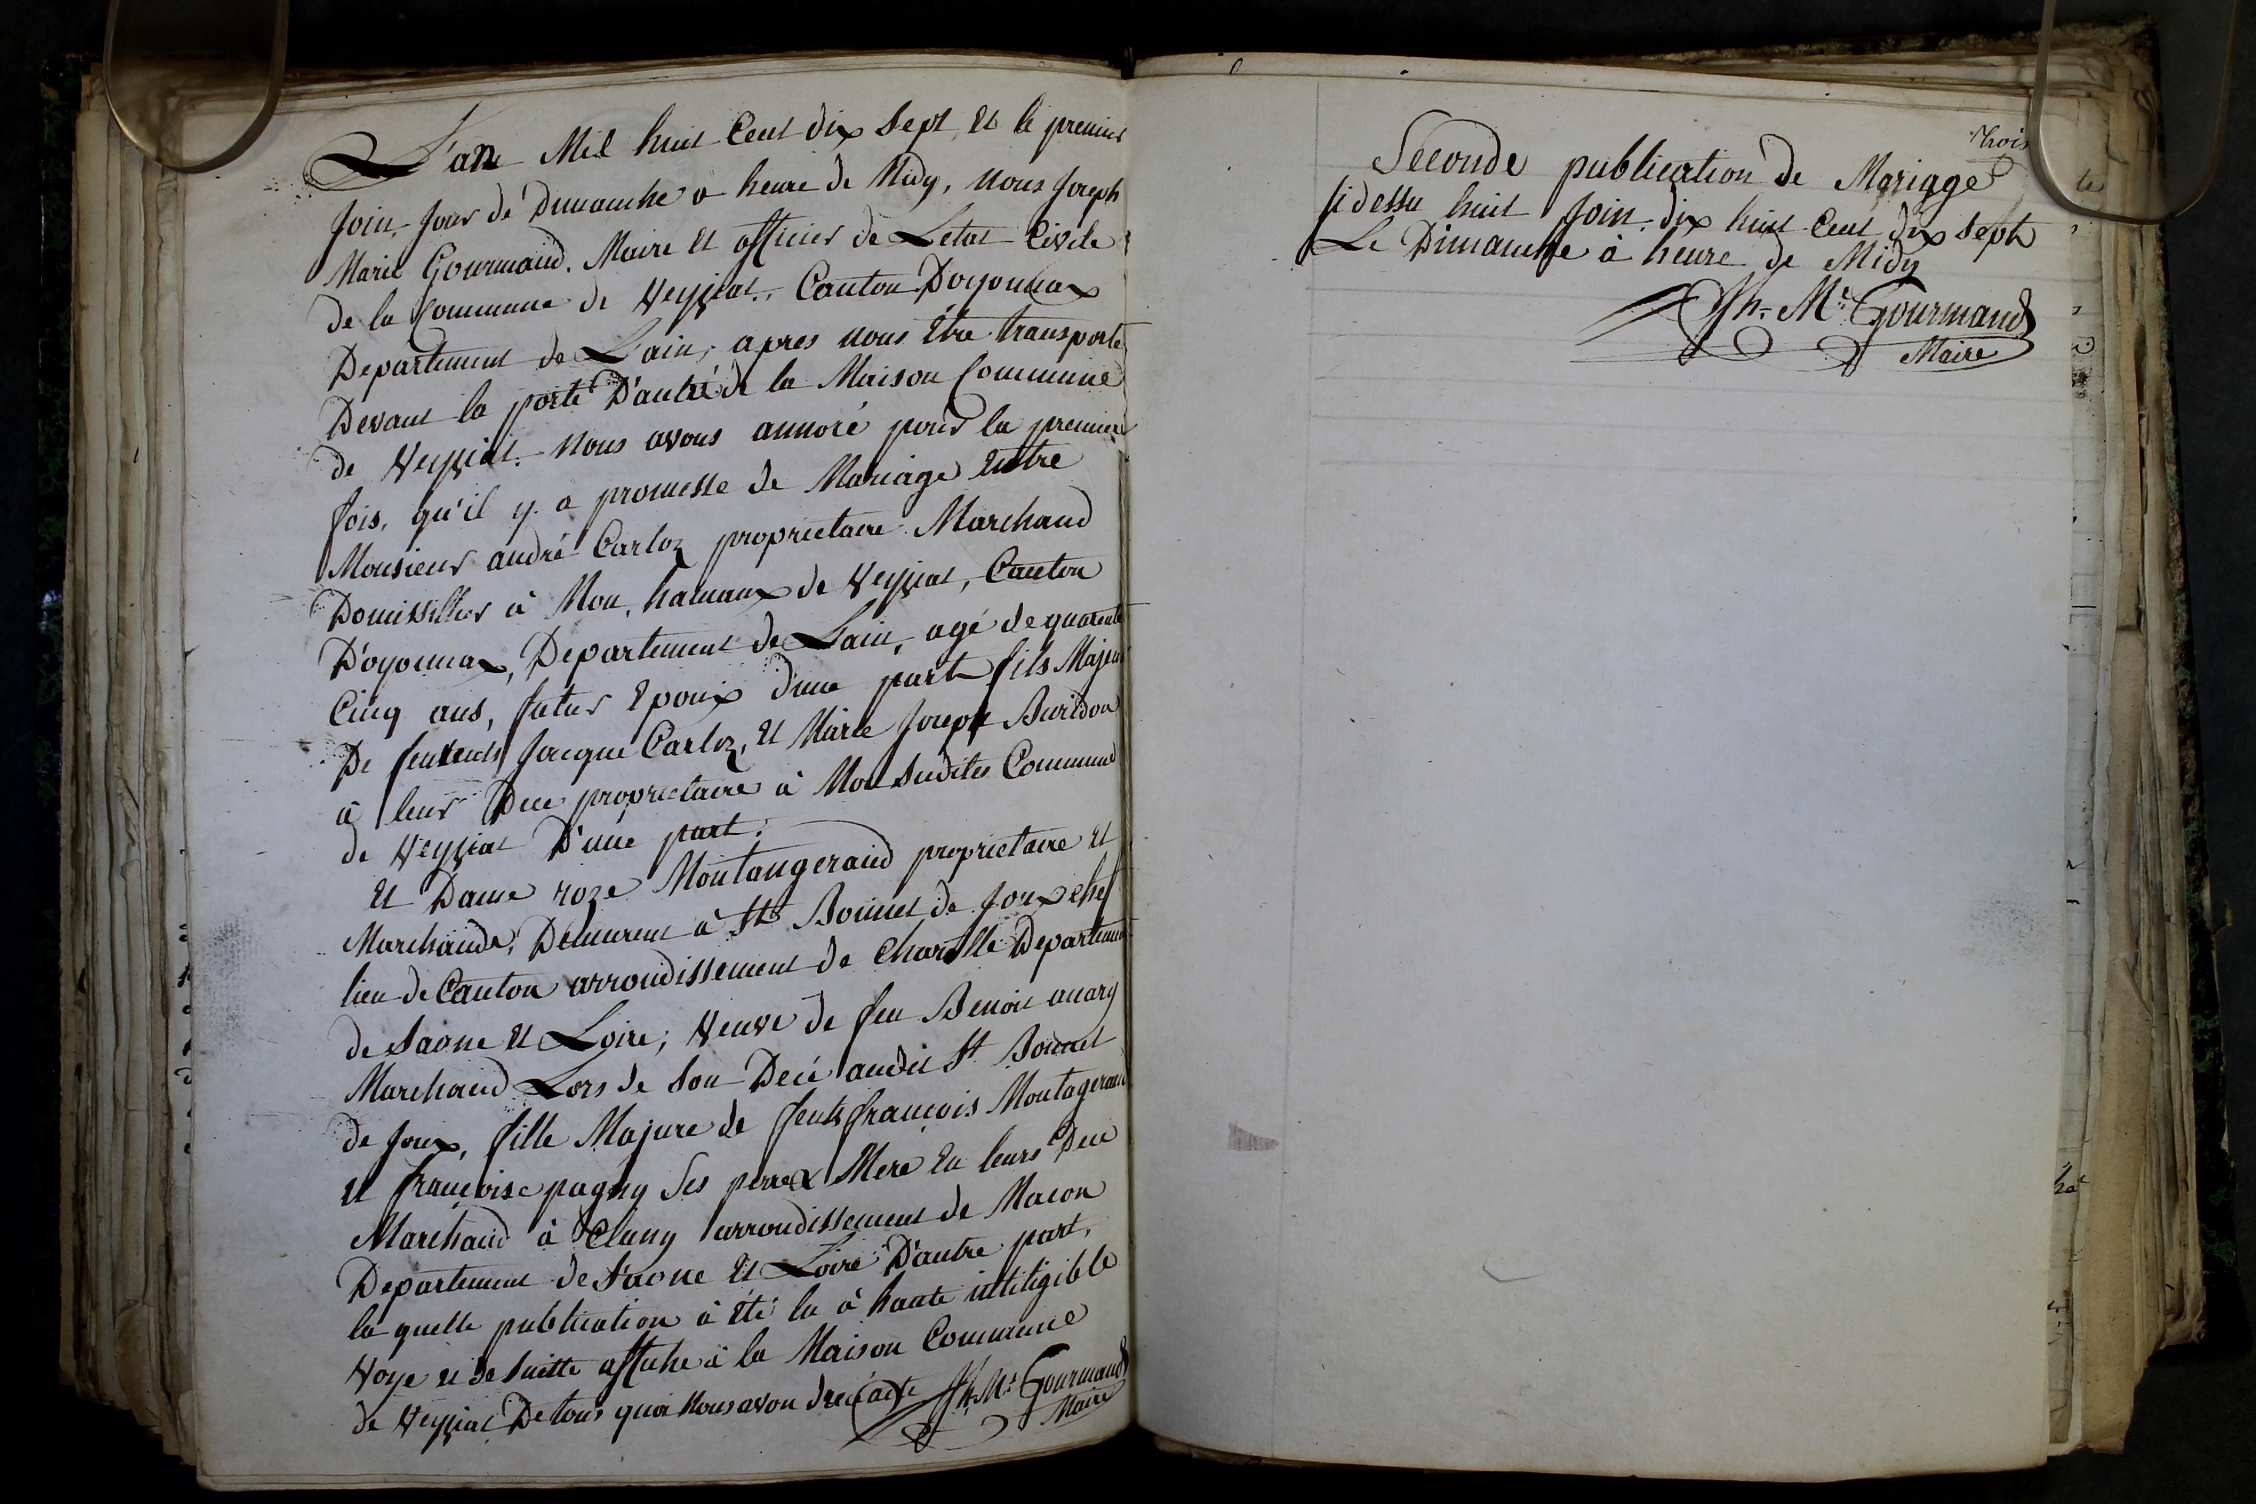 L'an Mil huit Cent dix Sept, et le premier
Join, Jour de Dimanche a heure de Midy, Nous Joseph
Marie Gourmand, Maire et officier de Létat Civile
de la Commune de Veyziat, Canton Doyonnax
Departement de Lain, apres nous être transporté
Devant la porte D'antré de la Maison Commune
de Veyziat. Nous avons annoré pour la premier
fois, qu'il y a promesse de Mariage Entre
Monsieur andré Carloz proprietaire Marchand
Domissillier à Mon, hamaux de Veyziat, Canton
D'oyonnax, Departement de Lain, agé de quarente
Cinq ans, futur Epoux d'une part fils Majeur
De Jacque Carloz, et Marie Joseph Buridon
à leur Dece proprietaire à Mon Sudites Commune
de Veyziat D'une part.
Et Dame roze Montangerand proprietaire et
Marchande, Demeurent à St Bonnet de Joux chef
lieu de Canton arrondissement de Charolle Departement
de Saone et Loire, Veuve de feu Benoit
Marchand Lors de Son Decé audit St Bonnet
de Joux, fille Majure de feuts françois Montagerand
et françoise pagny Ses perre & Mere En leurs Dece
Marchand à Cluny arrondissement de Macon
Departement de Saone et Loire D'autre part,
la quelle publication à été lu à haute intitigible
Voye et de Suitte affiche à la Maison Commune
de Veyziat De tous quoi Nous avon dreé acte Jh. Me Gourmand
Maire
Trois
Seconde publication de Mariage
si dessu huit Join dix huit Cent dix Sept
Le Dimanche à heure de Midy
Jh. Me Gourmand
Maire